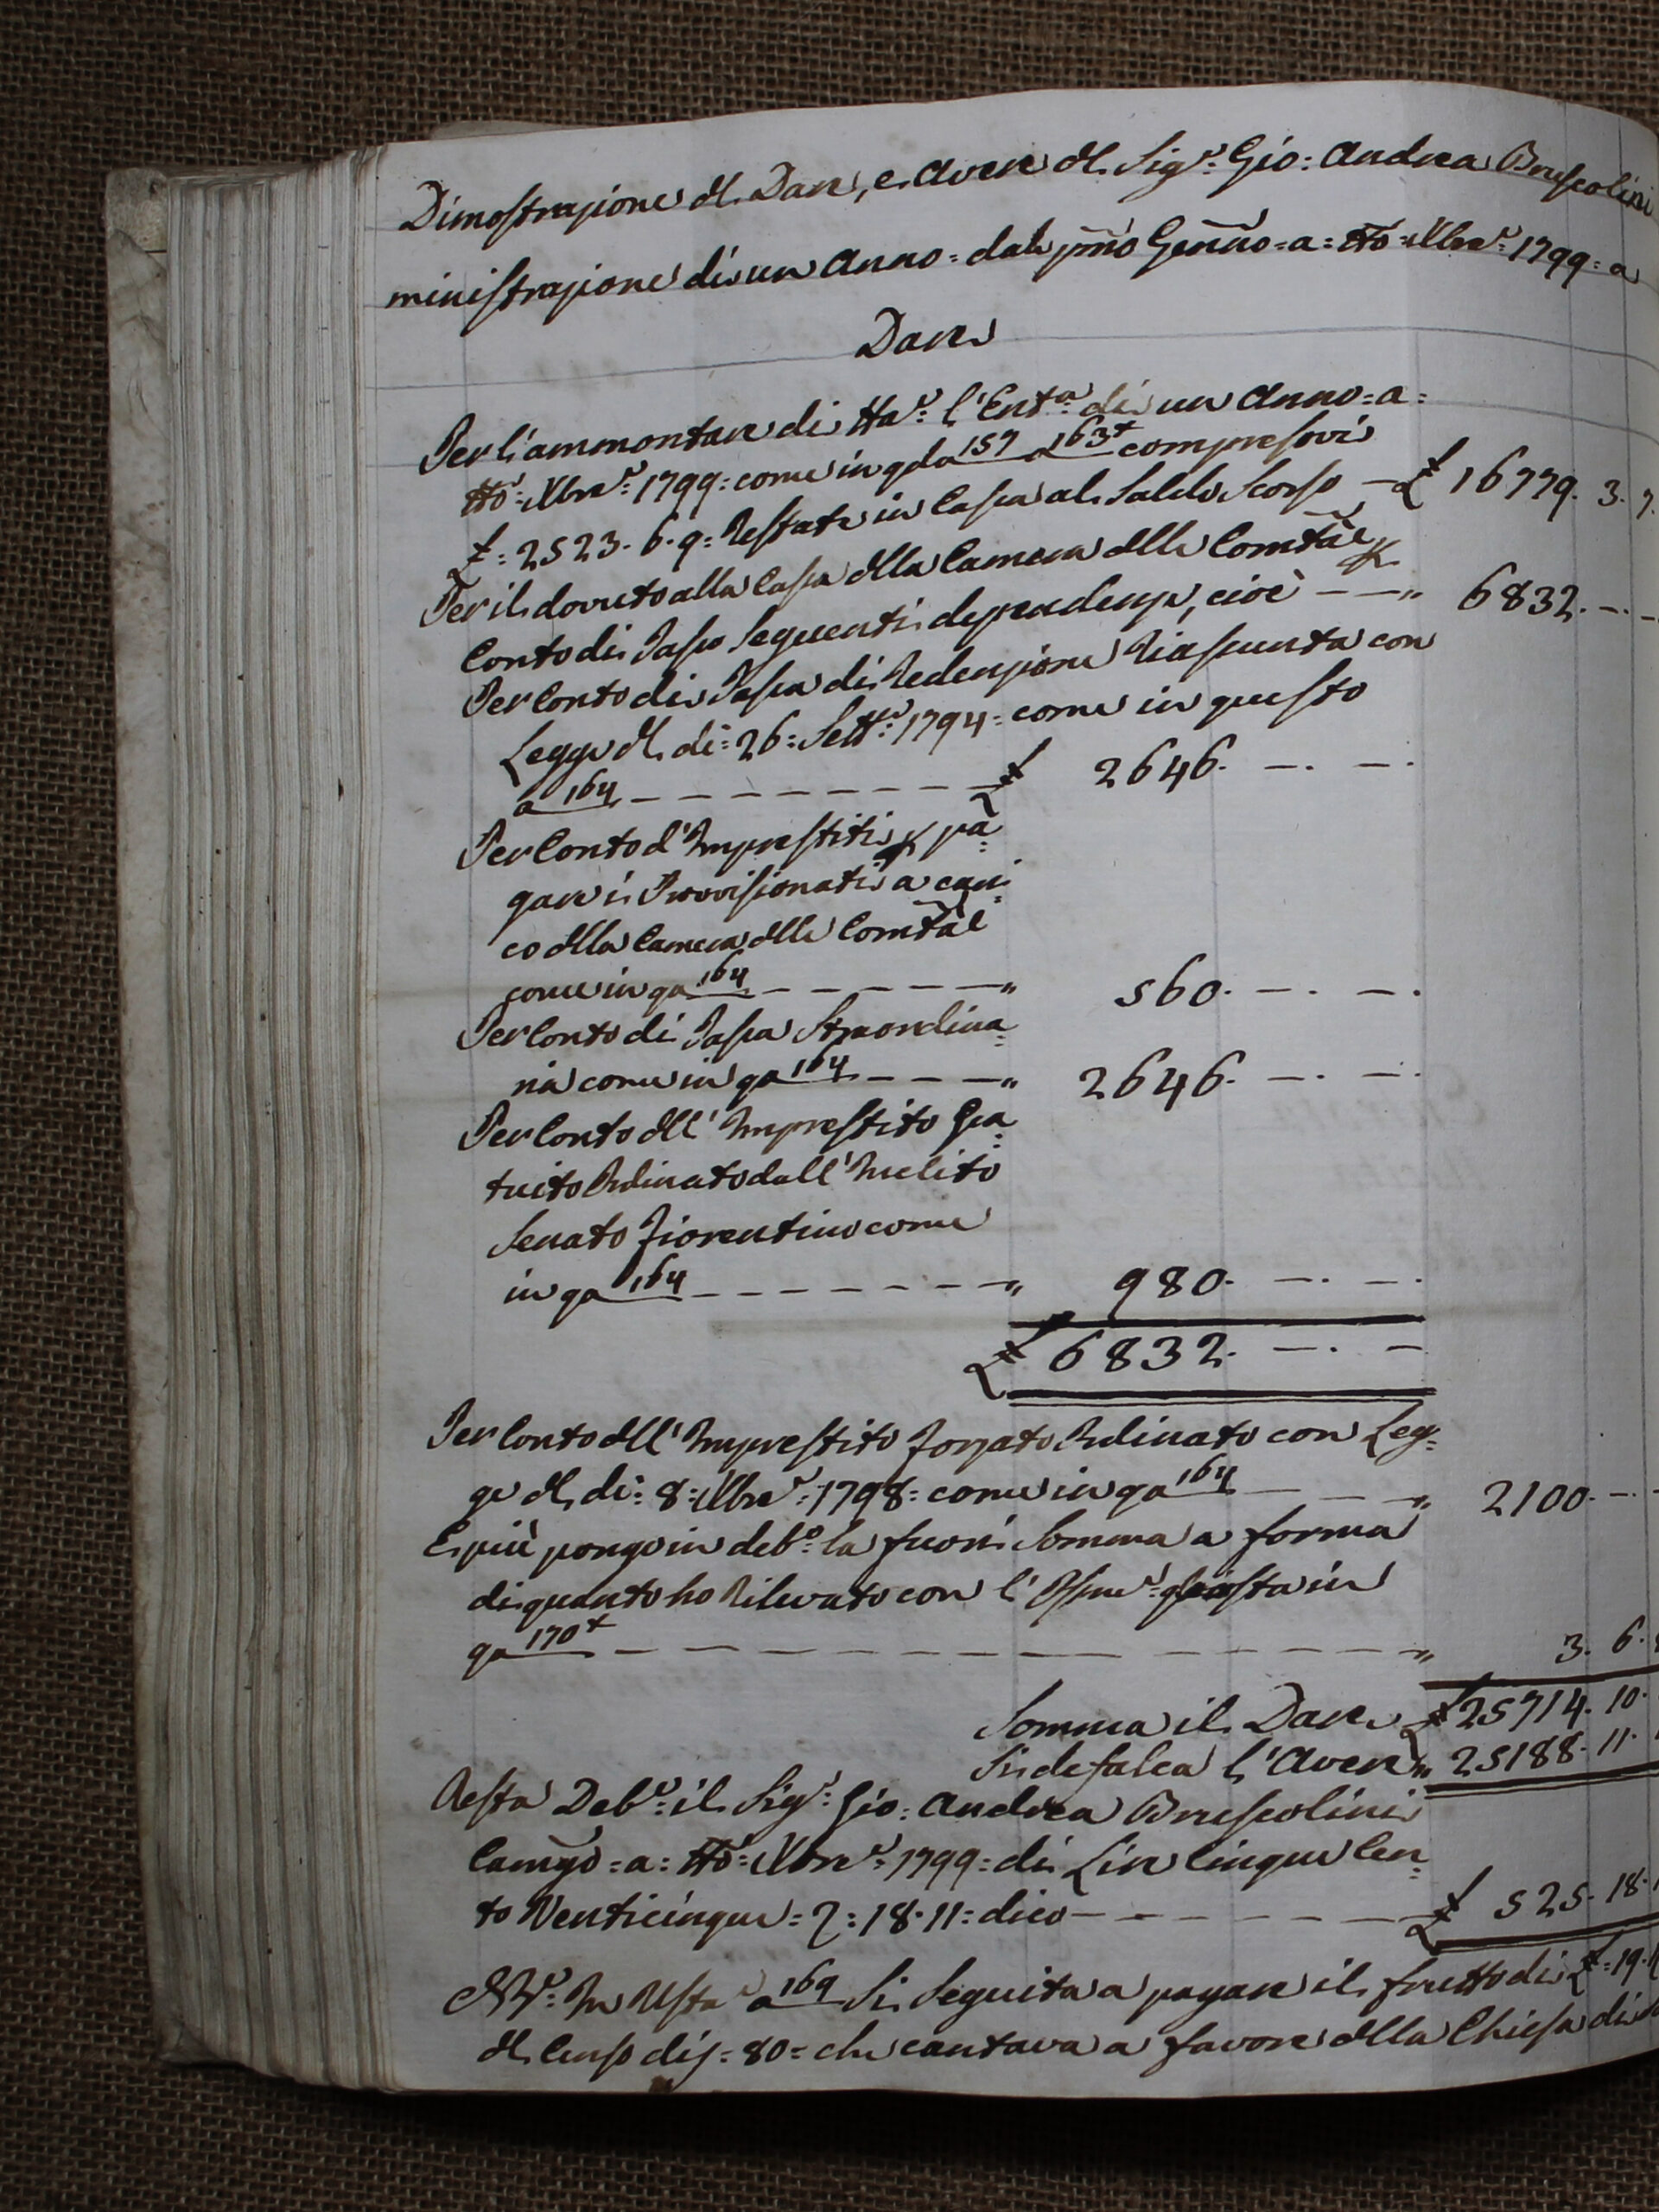 Dimostrazione dl Dare, e Avere dl Sigr: Gio: Andrea Bruscolini
ministrazione di un Anno = dal pmo Genno = a = tto = Xbre = 1799 = a
Dare
Per l'ammontare di tta l'Enta di un Anno = a =
tto Xbre = 1799 = come in qo da 157 a 163t compresovi
£ = 2523. 6. 9 = Restate in Cassa al Saldo Scorso — £ 16779. 3. 7.
Per il dovuto alla Cassa dlla Camera dlle Comtà p
Conto di Tasse Seguenti dependenze, cioè — — " 6832. — . —
Per Conto di Tassa di Redenzione Riassunta con
Legge dl dì = 26 = Sette 1794 = come in questo
a 164 — — — — — — — — £ 2646. — . — .
Per Conto d'Imprestiti p pa =
gare i Provvisionati a cari =
co dlla Camera dlle Comtà
come in qo a 164 — — — — — " 560. — . — .
Per Conto di Tassa Straordina =
ria come in qo a 164 — — — " 2646. — . — .
Per Conto dll' Imprestito Gra =
tuito Ordinato dall' Inclito
Senato Fiorentino come
in qo a 164 — — — — — — — " 980. — . — .
£ 6832. — . —
Per Conto dll' Imprestito forzato Ordinato con Leg =
ge dl dì = 8 = Xbre = 1798 = come in qo a 164 — — — " 2100. — .
E più pongo in debo la fuori Somma a forma
di quanto ho Rilevato con l' Osservne posta in
qo a 170t — — — — — — — — — — " 3. 6.
Somma il Dare £ 25714. 10.
Si defalca l'Avere " 25188. 11.
Resta Debre il Sigr: Gio: Andrea Bruscolini
Camgo = a = tto = Xbre = 1799 = di Lire Cinque Cen =
to Venticinque = 2 = 18. 11 = dico — — — — — — £ 525. 18.
a 169 Si Seguita a pagare il frutto di £ = 19.
dl Censo di = 80 = che cantava a favore dlla Chiesa di